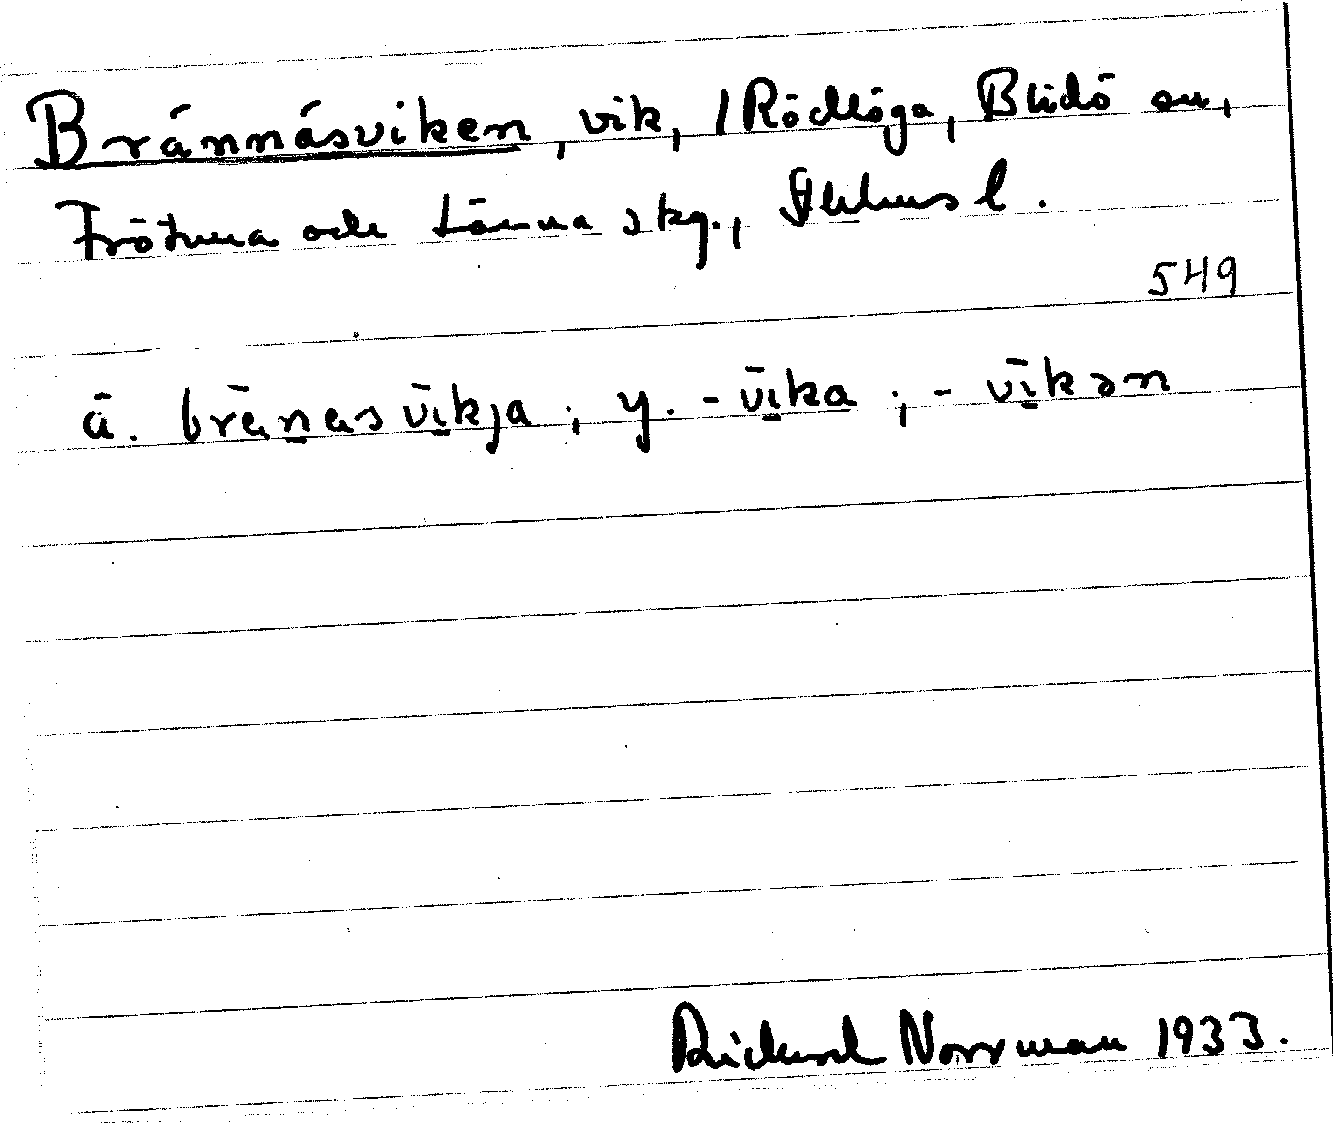 Brännäsviken, vik, / Rödlöga, Blidö sn,
Frötuna och Länna skg., Sthlms l.
549
ä. bränasvikja; y. -vika; -vikən
Rickard Norrman 1933.